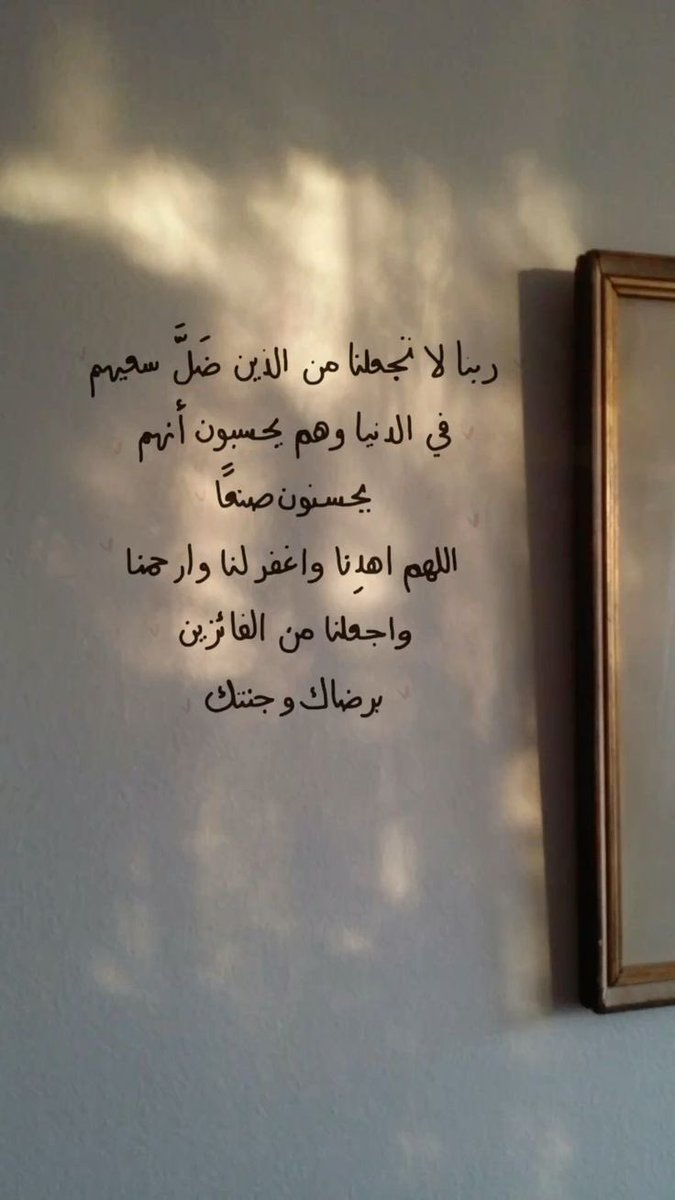 ربنا لا تجعلنا من الذين ضَلَّ سعيهم
في الدنيا وهم يحسبون أنهم
يحسنون صنعًا
اللهم اهدِنا واغفر لنا وارحمنا
واجعلنا من الفائزين
برضاك وجنتك